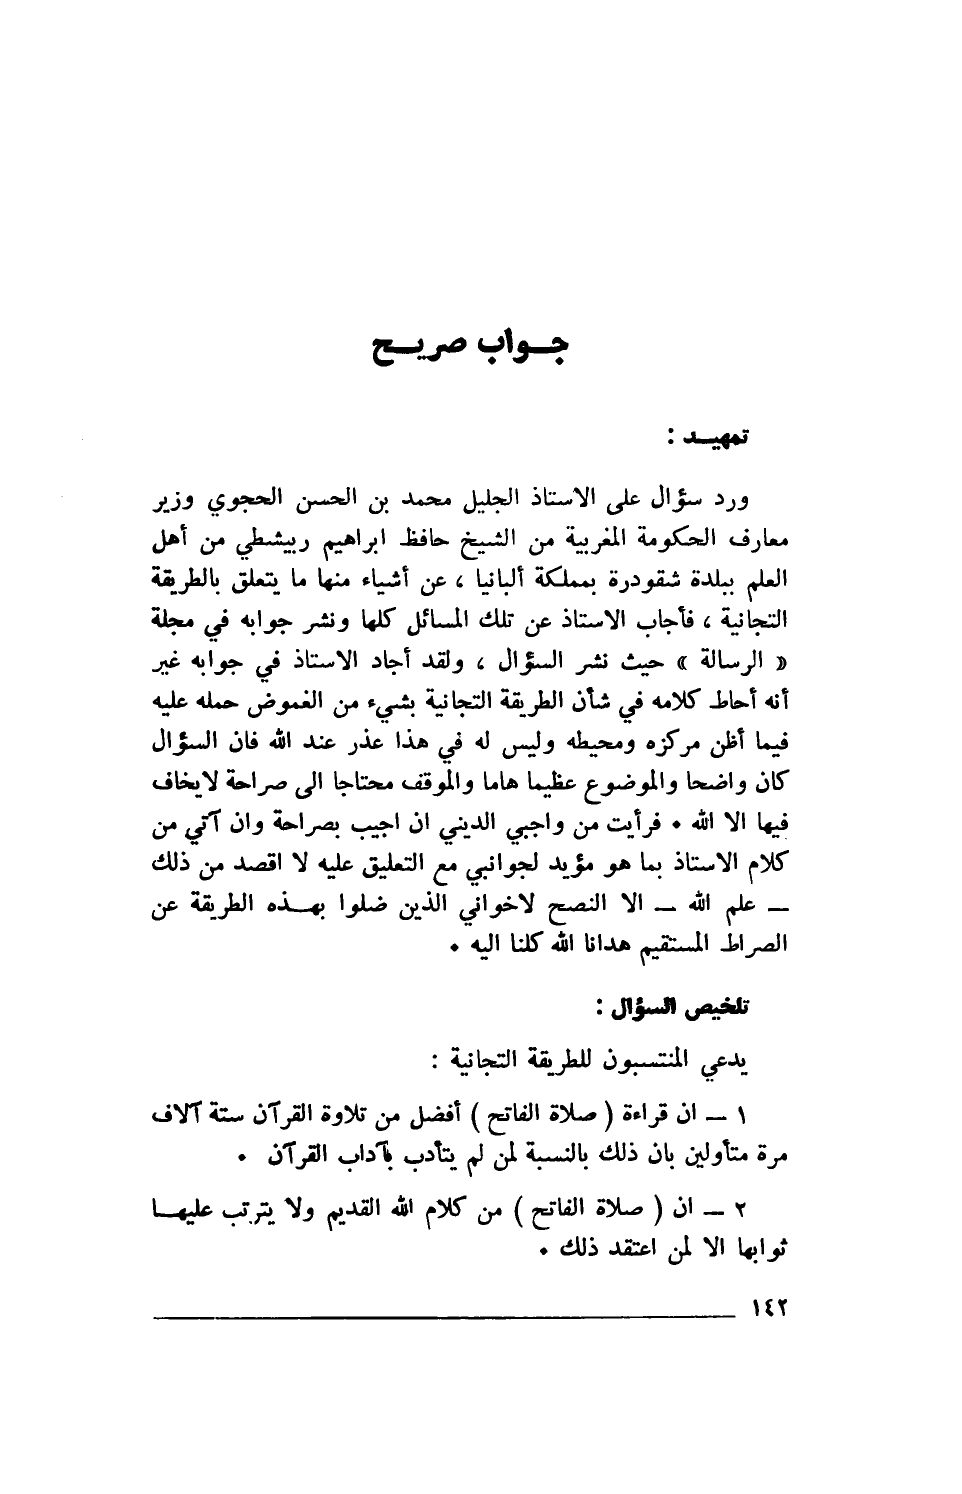 جـواب صريـح
تمهيـد :
ورد سؤال على الاستاذ الجليل محمد بن الحسن الحجوي وزير
معارف الحكومة المغربية من الشيخ حافظ ابراهيم ربيشطي من أهل
العلم ببلدة شقودرة بمملكة ألبانيا ، عن أشياء منها ما يتعلق بالطريقة
التجانية ، فأجاب الاستاذ عن تلك المسائل كلها ونشر جوابه في مجلة
« الرسالة » حيث نشر السؤال ، ولقد أجاد الاستاذ في جوابه غير
أنه أحاط كلامه في شأن الطريقة التجانية بشيء من الغموض حمله عليه
فيما أظن مركزه ومحيطه وليس له في هذا عذر عند الله فان السؤال
كان واضحا والموضوع عظيما هاما والموقف محتاجا الى صراحة لايخاف
فيها الا الله . فرأيت من واجبي الديني ان اجيب بصراحة وان آتي من
كلام الاستاذ بما هو مؤيد لجوانبي مع التعليق عليه لا اقصد من ذلك
ــ علم الله ــ الا النصح لاخواني الذين ضلوا بهـذه الطريقة عن
الصراط المستقيم هدانا الله كلنا اليه .
تلخيص السؤال :
يدعي المنتسبون للطريقة التجانية :
١ ــ ان قراءة ( صلاة الفاتح ) أفضل من تلاوة القرآن ستة آلاف
مرة متأولين بان ذلك بالنسبة لمن لم يتأدب بآداب القرآن .
٢ ــ ان ( صلاة الفاتح ) من كلام الله القديم ولا يترتب عليهـا
ثوابها الا لمن اعتقد ذلك .
١٤٢